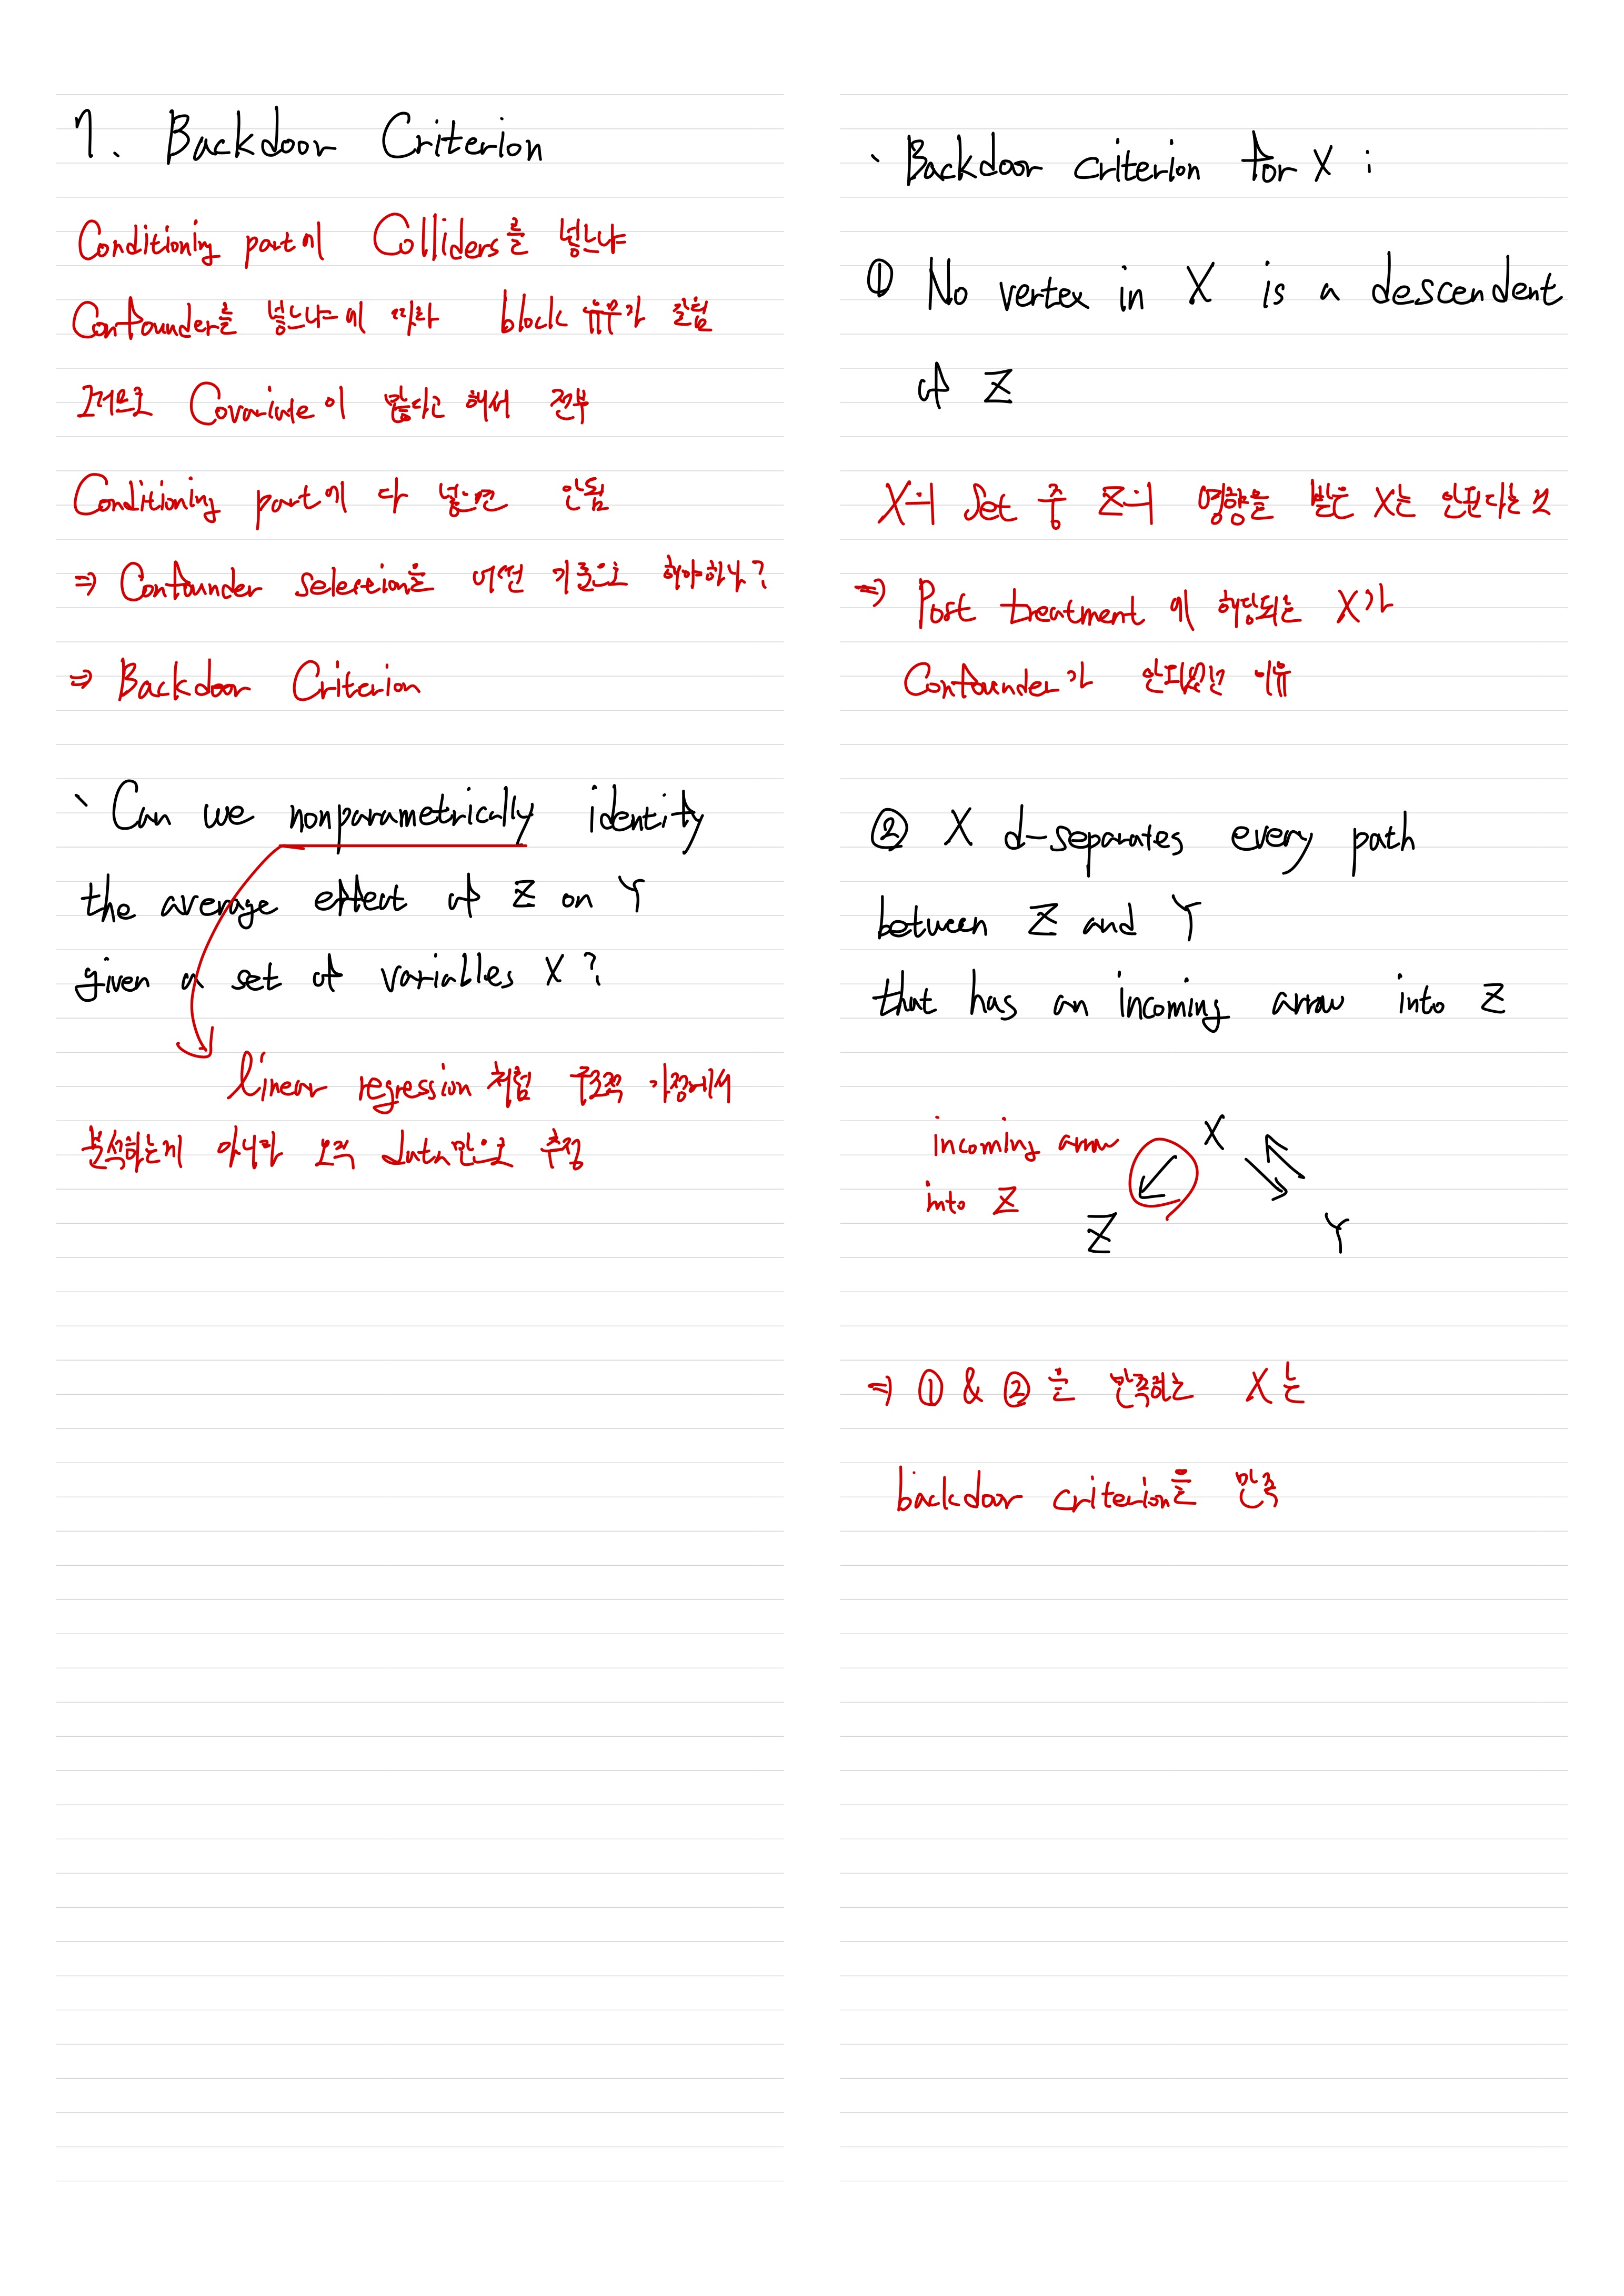 7. Backdoor Criterion
Conditioning part에 Colliders를 넣느냐
Confounder를 넣느냐에 따라 block 유무가 갈림
그러므로 Covariate이 많다고 해서 전부
Conditioning part에 다 넣으면 안됨
⇒ Confounder selection을 어떤 기준으로 해야하나?
⇒ Backdoor Criterion
` Can we nonparametrically identify
the average effect of Z on Y
given a set of variables X?
linear regression 처럼 구조적 가정에서
분석하는게 아니라 오직 data만으로 추정
` Backdoor criterion for X :
① No vertex in X is a descendent
of Z
X의 Set 중 Z의 영향을 받은 X는 안된다는 것
⇒ Post treatment 에 해당되는 X가
Confounder가 안되었던 이유
② X d-separates every path
between Z and Y
that has an incoming arrow into Z
incoming arrow
into Z
X
Z Y
⇒ ① & ② 을 만족하는 X는
backdoor criterion을 만족